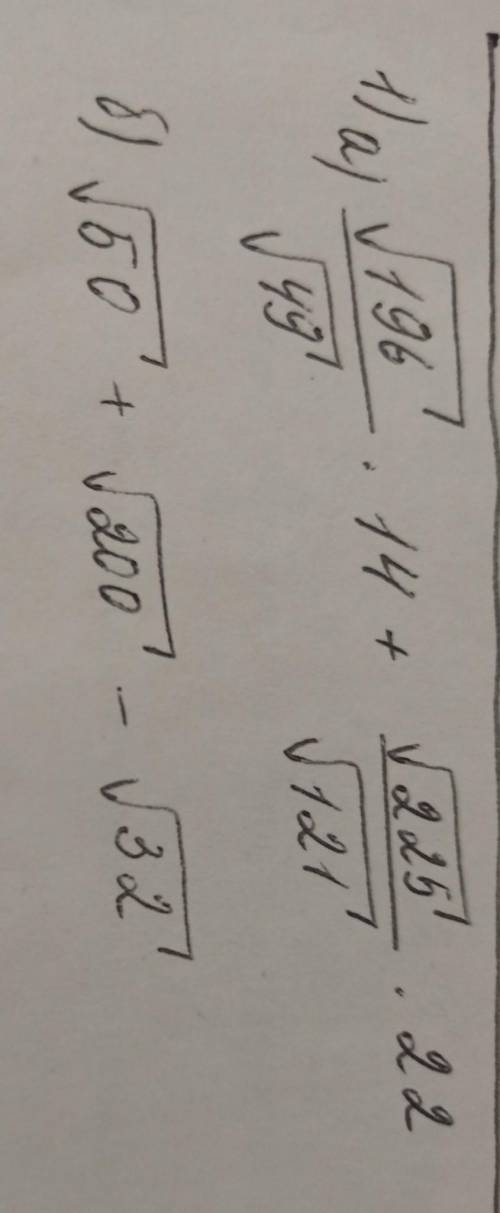 1) а) √196 / √49 · 14 + √225 / √121 · 22
б) √50 + √200 - √32